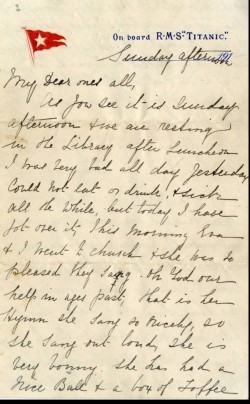 On board R·M·S "TITANIC."
Sunday afternoon 191
My Dear ones all,
As you see it is Sunday
afternoon & we are resting
in the Library after Luncheon
I was very bad all day Yesterday
Could not eat or drink, & sick
all the while, but today I have
got over it, This Morning Eva
& I went to church & she was so
pleased they sang Oh God our
help in ages past, that is her
Hymn she sang so nicely, so
she sang out loud, she is
very bonny. she has had a
Nice Ball & a box of Toffee